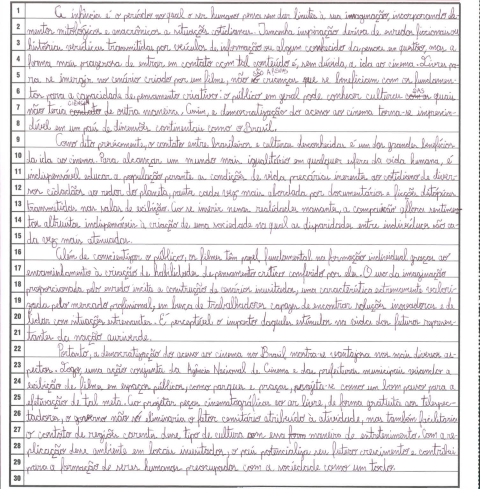 1 A infância é o período no qual o ser humano pensa sem dar limites à sua imaginação, incorporando ele-
2 mentos mitológicos e anacrônicos a situações cotidianas. Tamanha inspiração deriva de enredos ficcionais ou
3 histórias verídicas transmitidas por veículos de informação ou algum conhecido da pessoa em questão, mas a
4 forma mais prazerosa de entrar em contato com tal conteúdo é, sem dúvida, a ida ao cinema. Livres pa-
5 ra se imergir no cenário criado por um filme, não são apenas crianças que se beneficiam com os fundamen-
6 tos para a capacidade de pensamento criativo: o público em geral pode conhecer culturas das quais
7 não teria ciência de outra maneira. Assim, a democratização do acesso ao cinema torna-se imprescin-
8 dível em um país de dimensões continentais como o Brasil.
9 Como dito previamente, o contato entre brasileiros e culturas desconhecidas é um dos grandes benefícios
10 da ida ao cinema. Para alcançar um mundo mais igualitário em qualquer esfera da vida humana, é
11 indispensável educar a população perante a condição de vida precária inerente ao cotidiano de diver-
12 sos cidadãos ao redor do planeta, pauta cada vez mais abordada por documentários e ficções distópicas
13 transmitidas nas salas de exibição. Ao se inserir nessa realidade momentânea, a compaixão aflora sentimen-
14 tos altruístas indispensáveis à criação de uma sociedade na qual as disparidades entre indivíduos são ca-
15 da vez mais atenuadas.
16 Além de conscientizar o público, os filmes têm papel fundamental na formação individual graças ao
17 encaminhamento à criação de habilidades de pensamento crítico conferido por eles. O uso da imaginação
18 proporcionado pelo enredo incita a construção de cenários inusitados, uma característica extremamente valori-
19 zada pelo mercado profissional, em busca de trabalhadores capazes de encontrar soluções inovadoras e de
20 lidar com situações estressantes. É perceptível o impacto daqueles estímulos na vida dos futuros represen-
21 tantes da nação auriverde.
22 Portanto, a democratização do acesso ao cinema no Brasil mostra-se vantajosa nos mais diversos as-
23 pectos. Logo, uma ação conjunta da Agência Nacional de Cinema e das prefeituras municipais visando a
24 exibição de filmes em espaços públicos, como parques e praças, projeta-se como um bom passo para a
25 efetivação de tal meta. Ao projetar peças cinematográficas ao ar livre, de forma gratuita aos telespec-
26 tadores, o governo não só eliminaria o fator censitário atribuído à atividade, mas também facilitaria
27 o contato de regiões carentes desse tipo de cultura com essa maneira de entretenimento. Com a re-
28 plicação desse ambiente em locais inusitados, o país potencializa seu futuro crescimento e contribui
29 para a formação de seres humanos preocupados com a sociedade como um todo.
30